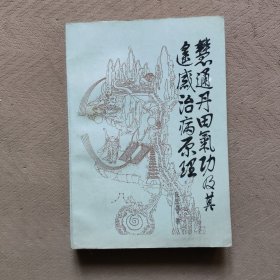 慧通丹田氣功及其
遙感治病原理
著